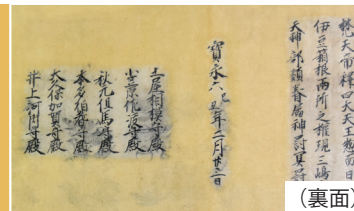 梵天帝釋四大天王惣而日
伊豆箱根両所之権現三嶋
天神部類眷属神罰冥罸
寶永六己丑年二月廿三日
土屋相模守殿
小笠原佐渡守殿
秋元但馬守殿
本多伯耆守殿
大久保加賀守殿
井上河内守殿
(裏面)